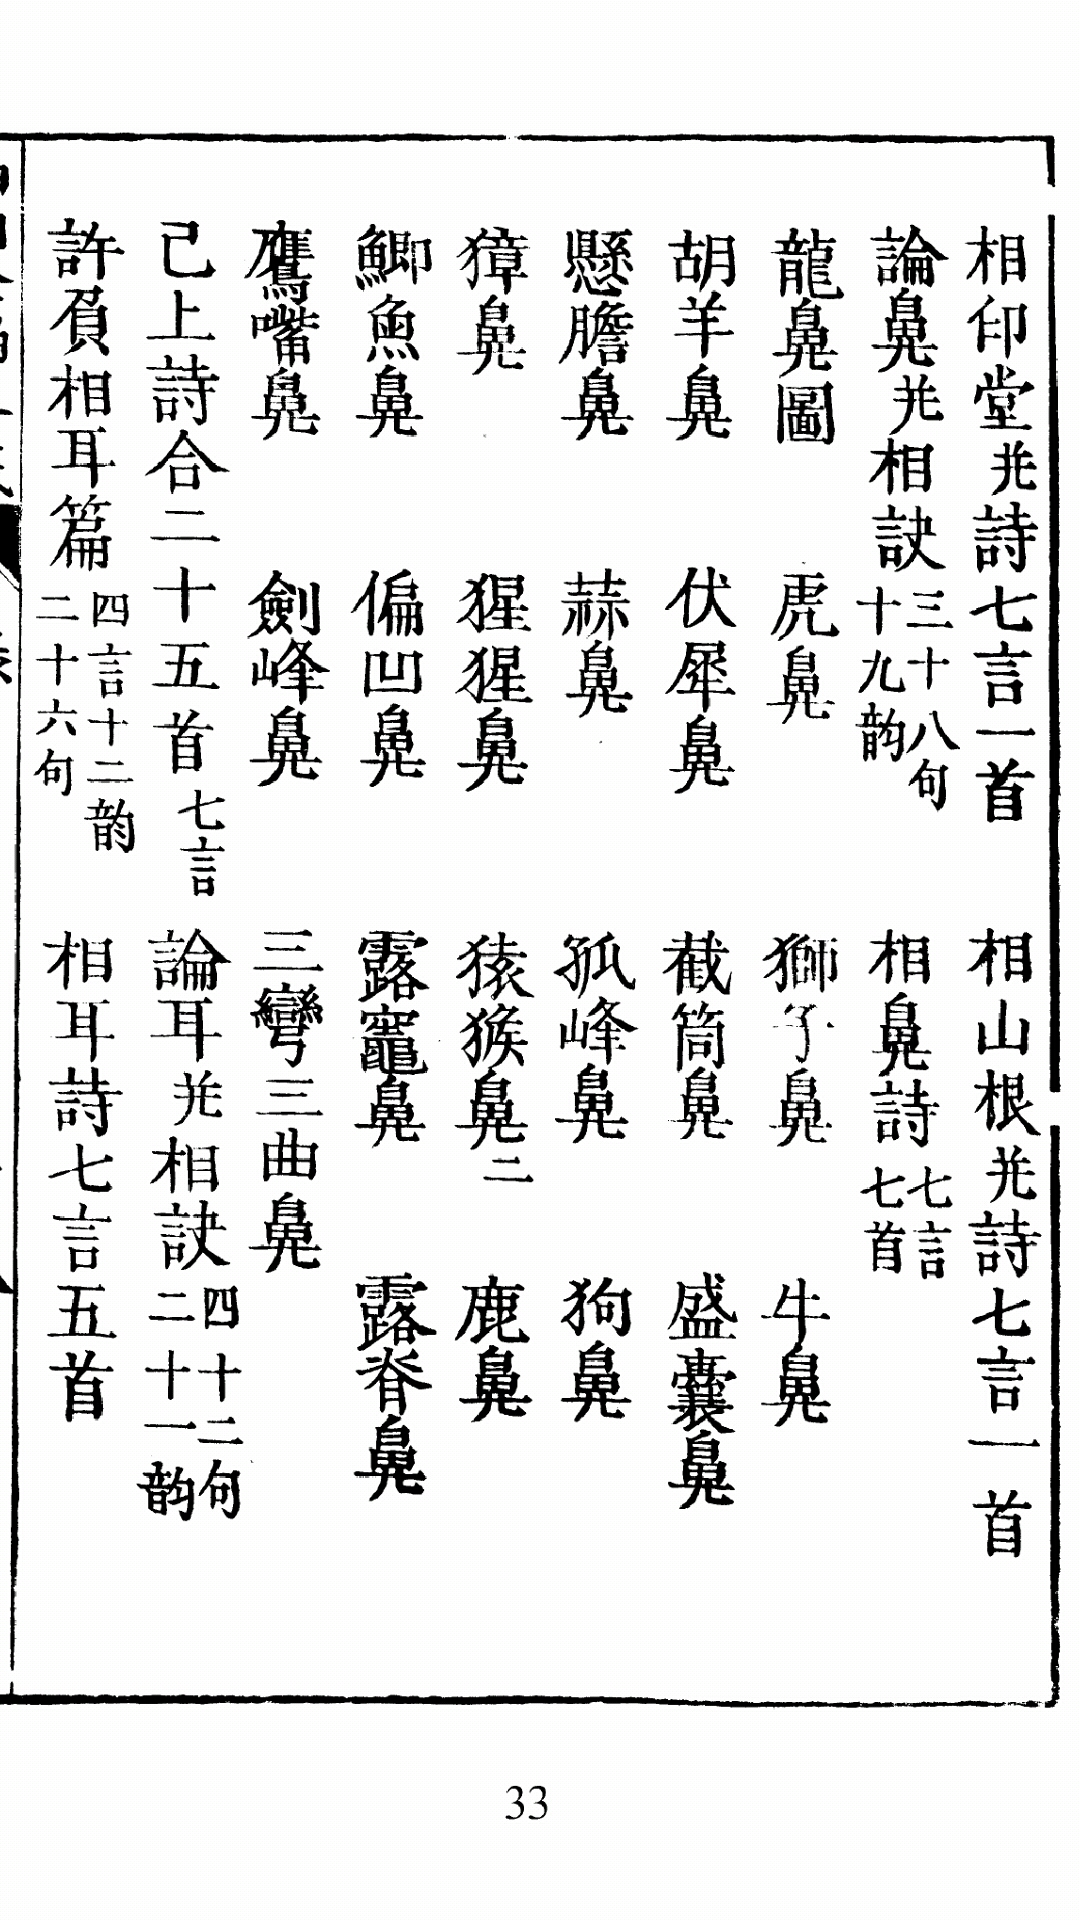 相印堂并詩七言一首　相山根并詩七言一首
論鼻并相訣三十八句十九韵　相鼻詩七言七首
龍鼻圖　虎鼻　獅子鼻　牛鼻
胡羊鼻　伏犀鼻　截筒鼻　盛囊鼻
懸膽鼻　蒜鼻　孤峰鼻　狗鼻
獐鼻　猩猩鼻　猿猴鼻二　鹿鼻
鯽魚鼻　偏凹鼻　露竈鼻　露脊鼻
鷹嘴鼻　劍峰鼻　三彎三曲鼻
已上詩合二十五首七言　論耳并相訣四十二句二十一韵
許負相耳篇四言十二韵二十六句　相耳詩七言五首
33